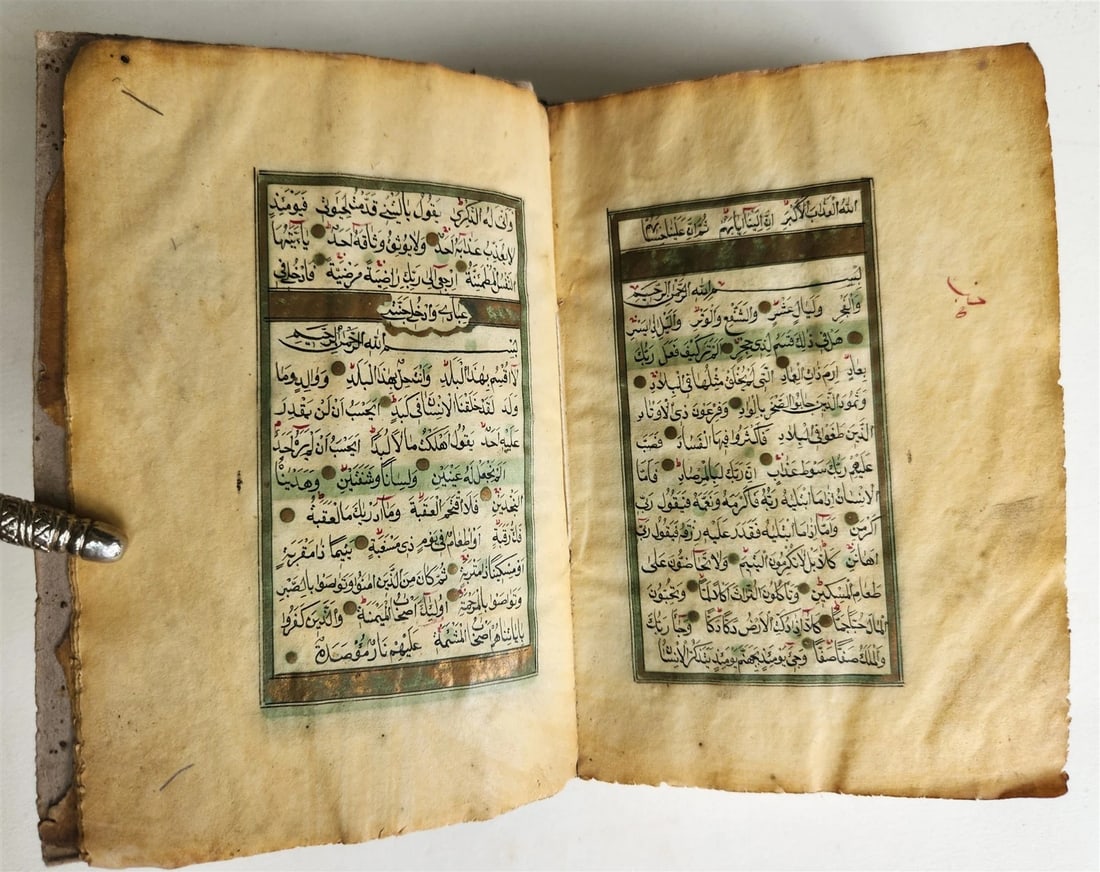 الله العذاب الاكبر ان الينا ايابهم ثم ان علينا حسابهم
بسم الله الرحمن الرحيم
والفجر وليال عشر والشفع والوتر والليل اذا يسر
هل في ذلك قسم لذي حجر الم تر كيف فعل ربك
بعاد ارم ذات العماد التي لم يخلق مثلها في البلاد
وثمود الذين جابوا الصخر بالواد وفرعون ذي الاوتاد
الذين طغوا في البلاد فاكثروا فيها الفساد فصب
عليهم ربك سوط عذاب ان ربك لبالمرصاد فاما
الانسان اذا ما ابتليه ربه فاكرمه ونعمه فيقول ربي
اكرمن واما اذا ما ابتليه فقدر عليه رزقه فيقول ربي
اهانن كلا بل لا تكرمون اليتيم ولا تحاضون على
طعام المسكين وتاكلون التراث اكلا لما وتحبون
المال حبا جما كلا اذا دكت الارض دكا دكا وجاء ربك
والملك صفا صفا وجيء يومئذ بجهنم يومئذ يتذكر الانسان
وانى له الذكرى يقول ياليتني قدمت لحياتي فيومئذ
لا يعذب عذابه احد ولا يوثق وثاقه احد ياايتها
النفس المطمئنة ارجعي الى ربك راضية مرضية فادخلي في
عبادي وادخلي جنتي
بسم الله الرحمن الرحيم
لا اقسم بهذا البلد وانت حل بهذا البلد ووالد وما
ولد لقد خلقنا الانسان في كبد ايحسب ان لن يقدر
عليه احد يقول اهلكت مالا لبدا ايحسب ان لم يره احد
الم نجعل له عينين ولسانا وشفتين وهديناه
النجدين فلا اقتحم العقبة وما ادريك ما العقبة
فك رقبة او اطعام في يوم ذي مسغبة يتيما ذا مقربة
او مسكينا ذا متربة ثم كان من الذين امنوا وتواصوا بالصبر
وتواصوا بالمرحمة اولئك اصحاب الميمنة والذين كفروا
باياتنا هم اصحاب المشئمة عليهم نار مؤصدة